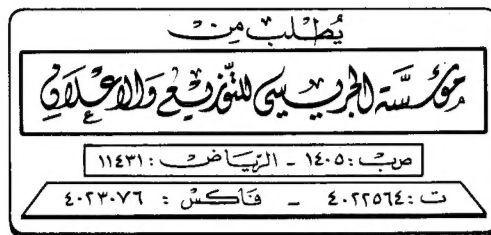 يُطْلَب مِنْ
مؤسَّسَة الجريسي للتَّوزيع وَالإعْلَان
صب : ١٤٠٥ - الريَاض : ١١٤٣١
ت : ٤٠٢٢٥٦٤ - فَاكسْ : ٤٠٢٣٠٧٦